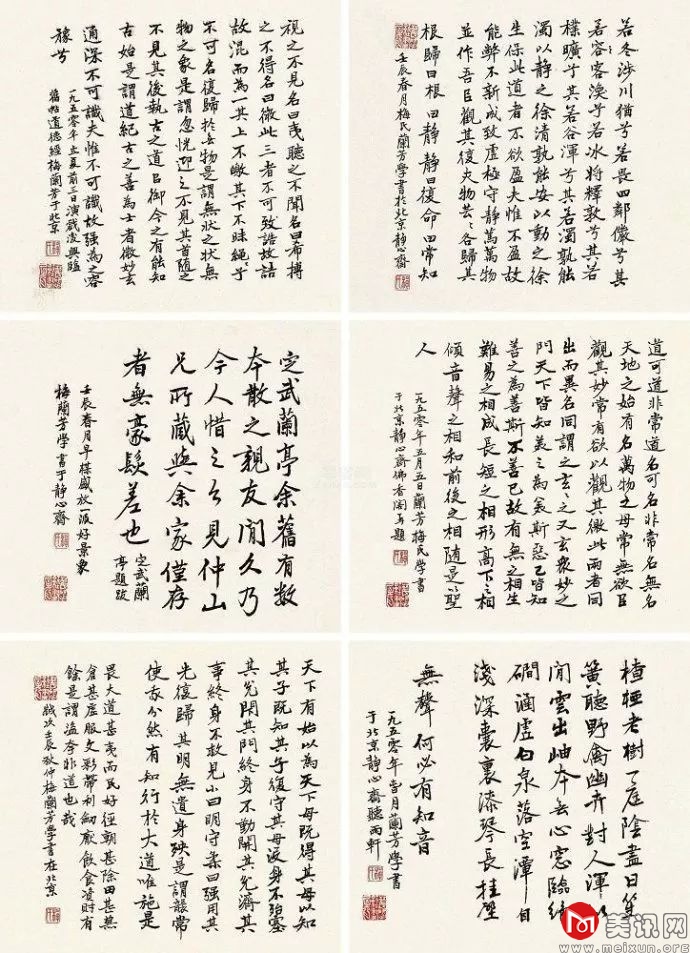 視之不見名曰夷聽之不聞名曰希搏
之不得名曰微此三者不可致詰故詰
故混而為一其上不皦其下不昧繩々兮
不可名復歸於無物是謂無狀之狀無
物之象是謂忽恍迎之不見其首隨之
不見其後執古之道以御今之有能知
古始是謂道紀古之善為士者微妙玄
通深不可識夫惟不可識故強為之容
豫兮
一九五零年立夏前三日演戲後興臨
舊帖道德經梅蘭芳于北京
若冬涉川猶兮若畏四鄰儼兮其
若容客渙兮若冰將釋敦兮其若
樸曠兮其若谷渾兮其若濁孰能
濁以靜之徐清孰能安以動之徐
生保此道者不欲盈夫惟不盈故
能弊不新成致虛極守靜篤萬物
並作吾以觀其復夫物芸々各歸其
根歸曰根曰靜靜曰復命曰常知
壬辰春月梅氏蘭芳學書於北京靜心齋
定武蘭亭余舊有數
本散之親友間久乃
今人惜之今見仲山
兄所藏與余家僅存
者無豪髮差也
定武蘭
亭題跋
壬辰春月早樣盛放一派好景象
梅蘭芳學書于靜心齋
道可道非常道名可名非常名無名
天地之始有名萬物之母常無欲以
觀其妙常有欲以觀其徼此兩者同
出而異名同謂之玄々之又玄眾妙之
門天下皆知美之為美斯惡已皆知
善之為善斯不善已故有無之相生
難易之相成長短之相形高下之相
傾音聲之相和前後之相隨是以聖
人
一九五零年五月五日蘭芳梅氏學書
于北京靜心齋佛香閣前題
天下有始以為天下母既得其母以知
其子既知其子復守其母沒身不殆塞
其兌閉其門終身不勤開其兌濟其
事終身不救見小曰明守柔曰強用其
光復歸其明無遺身殃是謂襲常
使我介然有知行於大道唯施是
畏大道甚夷而民好徑朝甚除田甚蕪
倉甚虛服文彩帶利劍厭飲食資財有
餘是謂盜夸非道也哉
歲次壬辰秋仲梅蘭芳學書在北京
楂枒老樹了庭陰盡日笙
簧聽野禽幽卉對人渾欲
閒雲出岫本無心窓臨絕
磵涵虛白泉落空潭自
淺深囊裏漆琴長挂壁
無聲何必有知音
一九五零年當月蘭芳學書
于北京靜心齋聽雨軒
美讯网
www.meixun.org